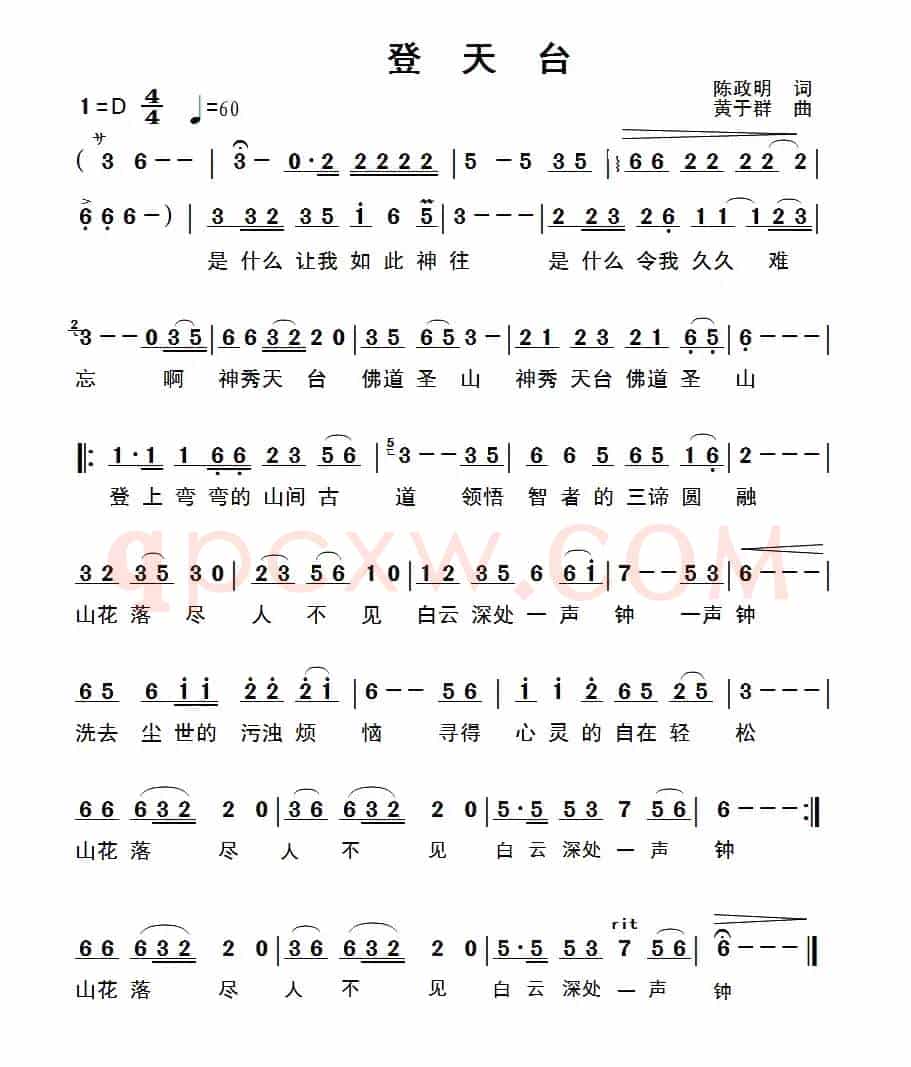 登 天 台
陈政明 词
1=D 4/4 ♩=60
黄于群 曲
サ
( 3 6 - - | 3 - 0·2 2222 | 5 - 5 35 | 66 22 22 2 |
6 6 6 - ) | 3 32 35 i 6 5 | 3 - - - | 2 23 26 11 123 |
是 什么 让我 如 此 神 往 是 什么 令我 久久 难
2 3 - - 035 | 66 32 20 | 35 65 3 - | 21 23 21 65 | 6 - - - |
忘 啊 神秀天 台 佛道 圣 山 神秀 天台 佛道 圣 山
|: 1·1 1 66 23 56 | 5 3 - - 35 | 6 6 5 65 16 | 2 - - - |
登 上 弯 弯的 山间 古 道 领悟 智 者 的 三谛 圆 融
qpcxw.COM
32 35 30 | 23 56 10 | 12 35 6 6i | 7 - - 53 | 6 - - - |
山花 落 尽 人 不 见 白云 深处 一 声 钟 一声 钟
65 6 ii 22 2i | 6 - - 56 | i i 2 65 25 | 3 - - - |
洗去 尘 世的 污浊 烦 恼 寻得 心 灵 的 自在 轻 松
66 632 20 | 36 632 20 | 5·5 53 7 56 | 6 - - - :|
山花 落 尽 人 不 见 白 云 深处 一 声 钟
rit
66 632 20 | 36 632 20 | 5·5 53 7 56 | 6 - - - ||
山花 落 尽 人 不 见 白 云 深处 一 声 钟